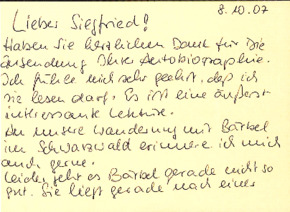 8.10.07
Lieber Siegfried!
Haben Sie herzlichen Dank für die
Zusendung Ihrer Autobiographie.
Ich fühle mich sehr geehrt, daß ich
sie lesen darf. Es ist eine äußerst
interessante Lektüre.
An unsere Wanderung mit Bärbel
im Schwarzwald erinnere ich mich
auch gerne.
Leider geht es Bärbel gerade nicht so
gut. Sie liegt gerade nach einer